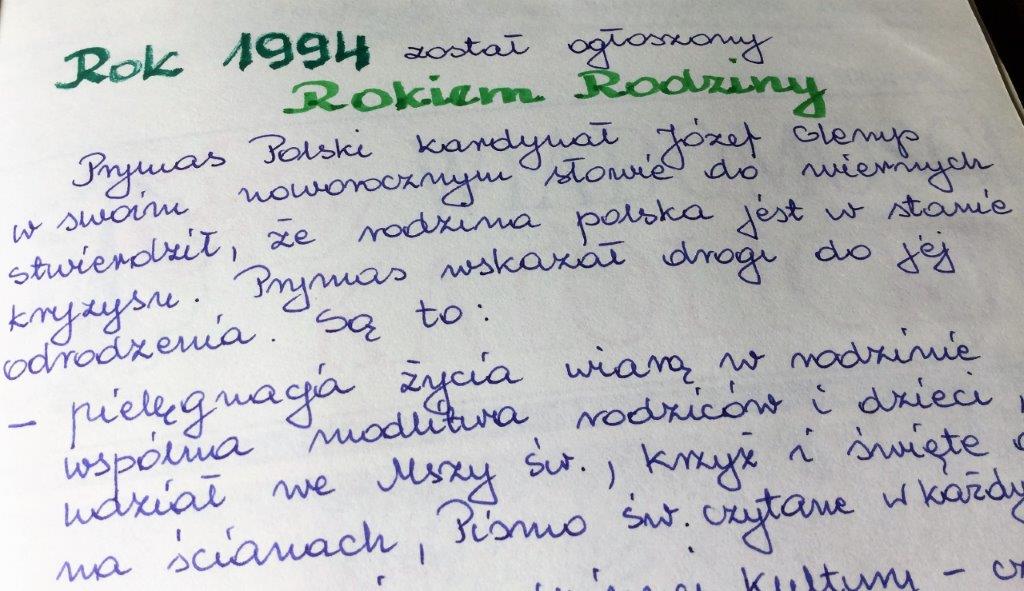 Rok 1994 został ogłoszony
Rokiem Rodziny
Prymas Polski kardynał Józef Glemp
w swoim noworocznym słowie do wiernych
stwierdził, że rodzina polska jest w stanie
kryzysu. Prymas wskazał drogi do jej
odrodzenia. Są to:
– pielęgnacja życia wiarą w rodzinie
wspólna modlitwa rodziców i dzieci,
udział we Mszy św., krzyż i święte
na ścianach, Pismo św. czytane w
kultury –